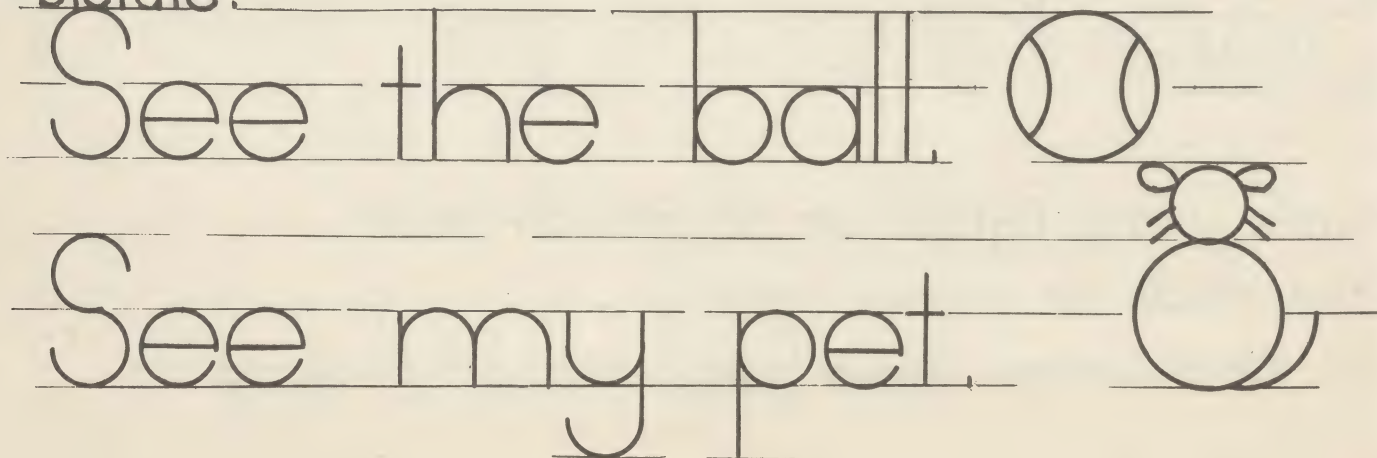 See the ball.
See my pet.